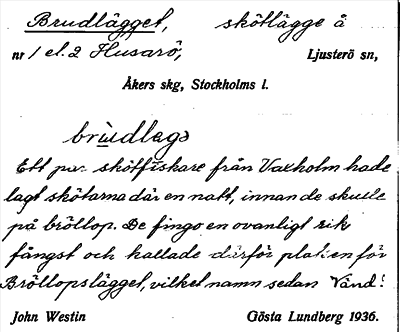 Brudlägget, skötlägge å
nr 1 el. 2 Husarö, Ljusterö sn,
Åkers skg, Stockholms l.
brudlagə
Ett par skötfiskare från Vaxholm hade
lagt skötarna där en natt, innan de skulle
på bröllop. De fingo en ovanligt rik
fångst och kallade därför platsen för
Bröllopslägget, vilket namn sedan vänd!
John Westin Gösta Lundberg 1936.